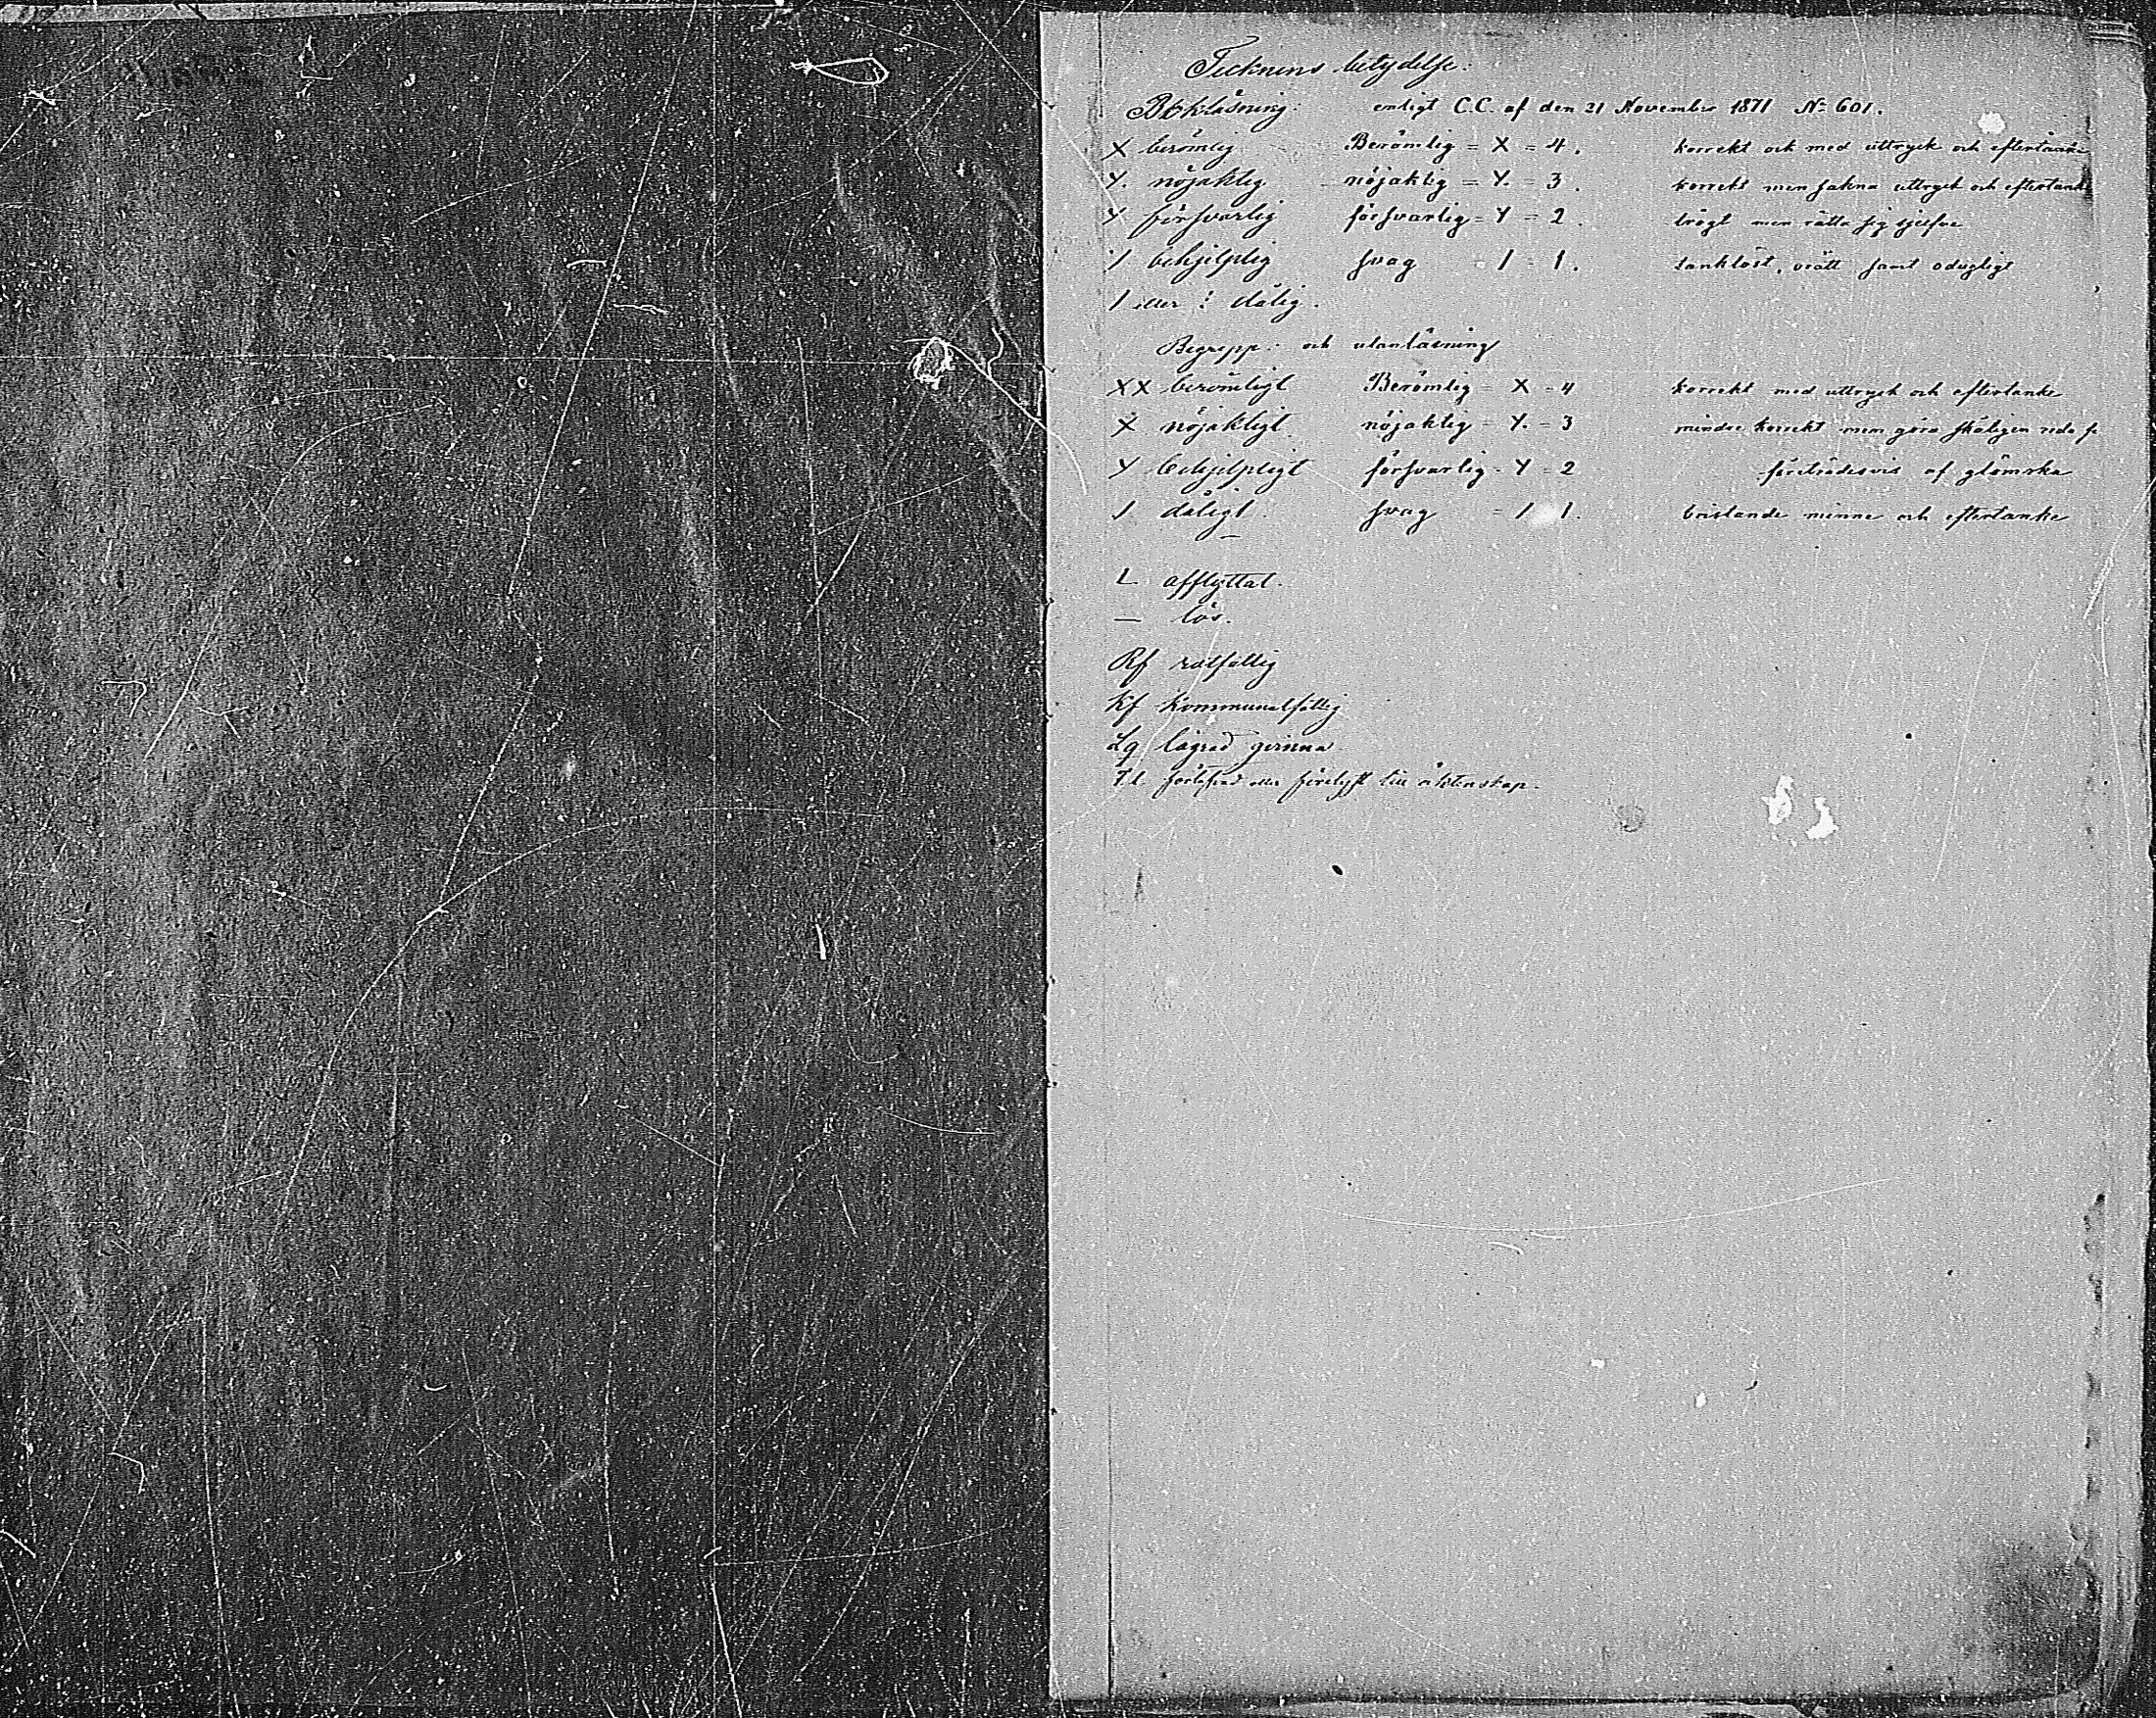 Tecknens betydelse:
Bokläsning: enligt C.C. af den 21 November 1871 No 601.
X berömlig Berömlig = X = 4. korrekt och med uttryck och eftertanke
Y. nöjaktig nöjaktig = Y. = 3. korrekt men sakna uttryck och eftertanke
Y försvarlig försvarlig = Y = 2. trögt men rätta sig sjelfve
/ behjelplig svag / = 1. tanklöst, orätt samt odugligt
/ eller : dålig.
Begrepp: och utanläsning
XX berömligt Berömlig = X = 4 korrekt med uttryck och eftertanke
X nöjaktligt nöjaktig = Y. = 3 mindre korrekt men göra skäligen reda f.
Y behjelpligt försvarlig = Y = 2 företrädesvis af glömska
/ dåligt. svag = / 1. bristande minne och eftertanke
L afflyttat.
— lös.
Rf rotfällig
Kf Kommunalfällig
Lg lägrad qvinna
T.l. eller förelyst till äktenskap.